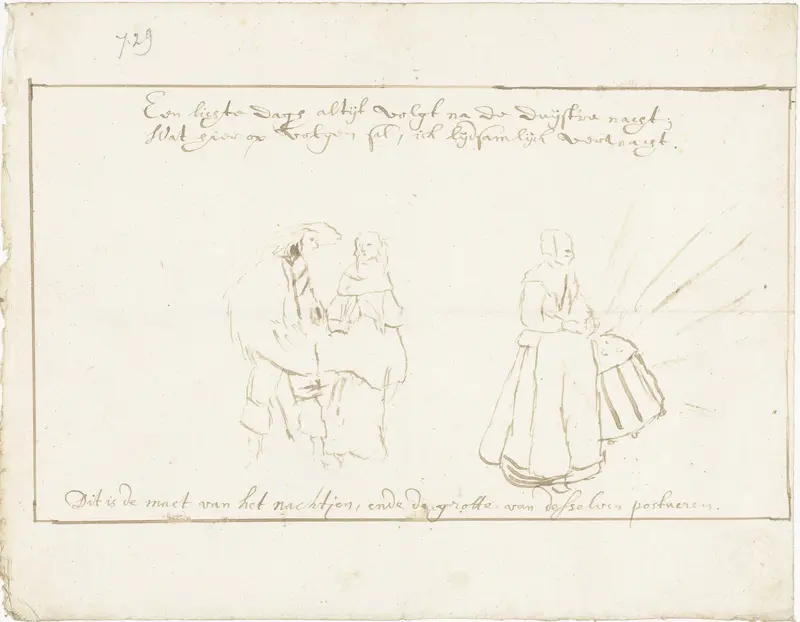 729
Een ligte dags altijt volgt na de duystre nacht;
Wat hier op volgen sal, ick lydsamlijck verwacht.
Dit is de maet van het nachtjen, ende de grotte van desselven postueren.